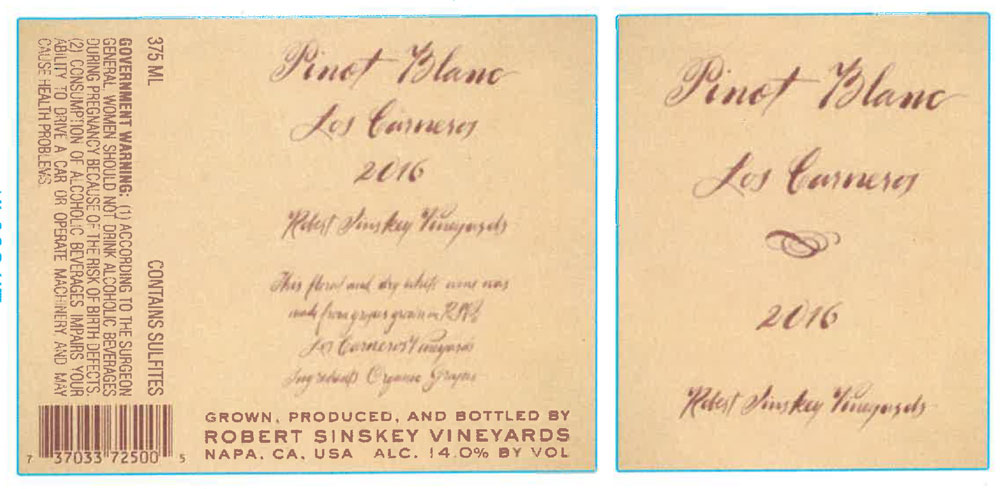 375 ML
CONTAINS SULFITES
GOVERNMENT WARNING: (1) ACCORDING TO THE SURGEON
GENERAL, WOMEN SHOULD NOT DRINK ALCOHOLIC BEVERAGES
DURING PREGNANCY BECAUSE OF THE RISK OF BIRTH DEFECTS.
(2) CONSUMPTION OF ALCOHOLIC BEVERAGES IMPAIRS YOUR
ABILITY TO DRIVE A CAR OR OPERATE MACHINERY AND MAY
CAUSE HEALTH PROBLEMS.
7 37033 72500 5
Pinot Blanc
Los Carneros
2016
Robert Sinskey Vineyards
This floral and dry white wine was
made from grapes grown in RSV's
Los Carneros Vineyards
Ingredients Organic Grapes
GROWN, PRODUCED, AND BOTTLED BY
ROBERT SINSKEY VINEYARDS
NAPA, CA, USA ALC. 14.0% BY VOL
Pinot Blanc
Los Carneros
2016
Robert Sinskey Vineyards